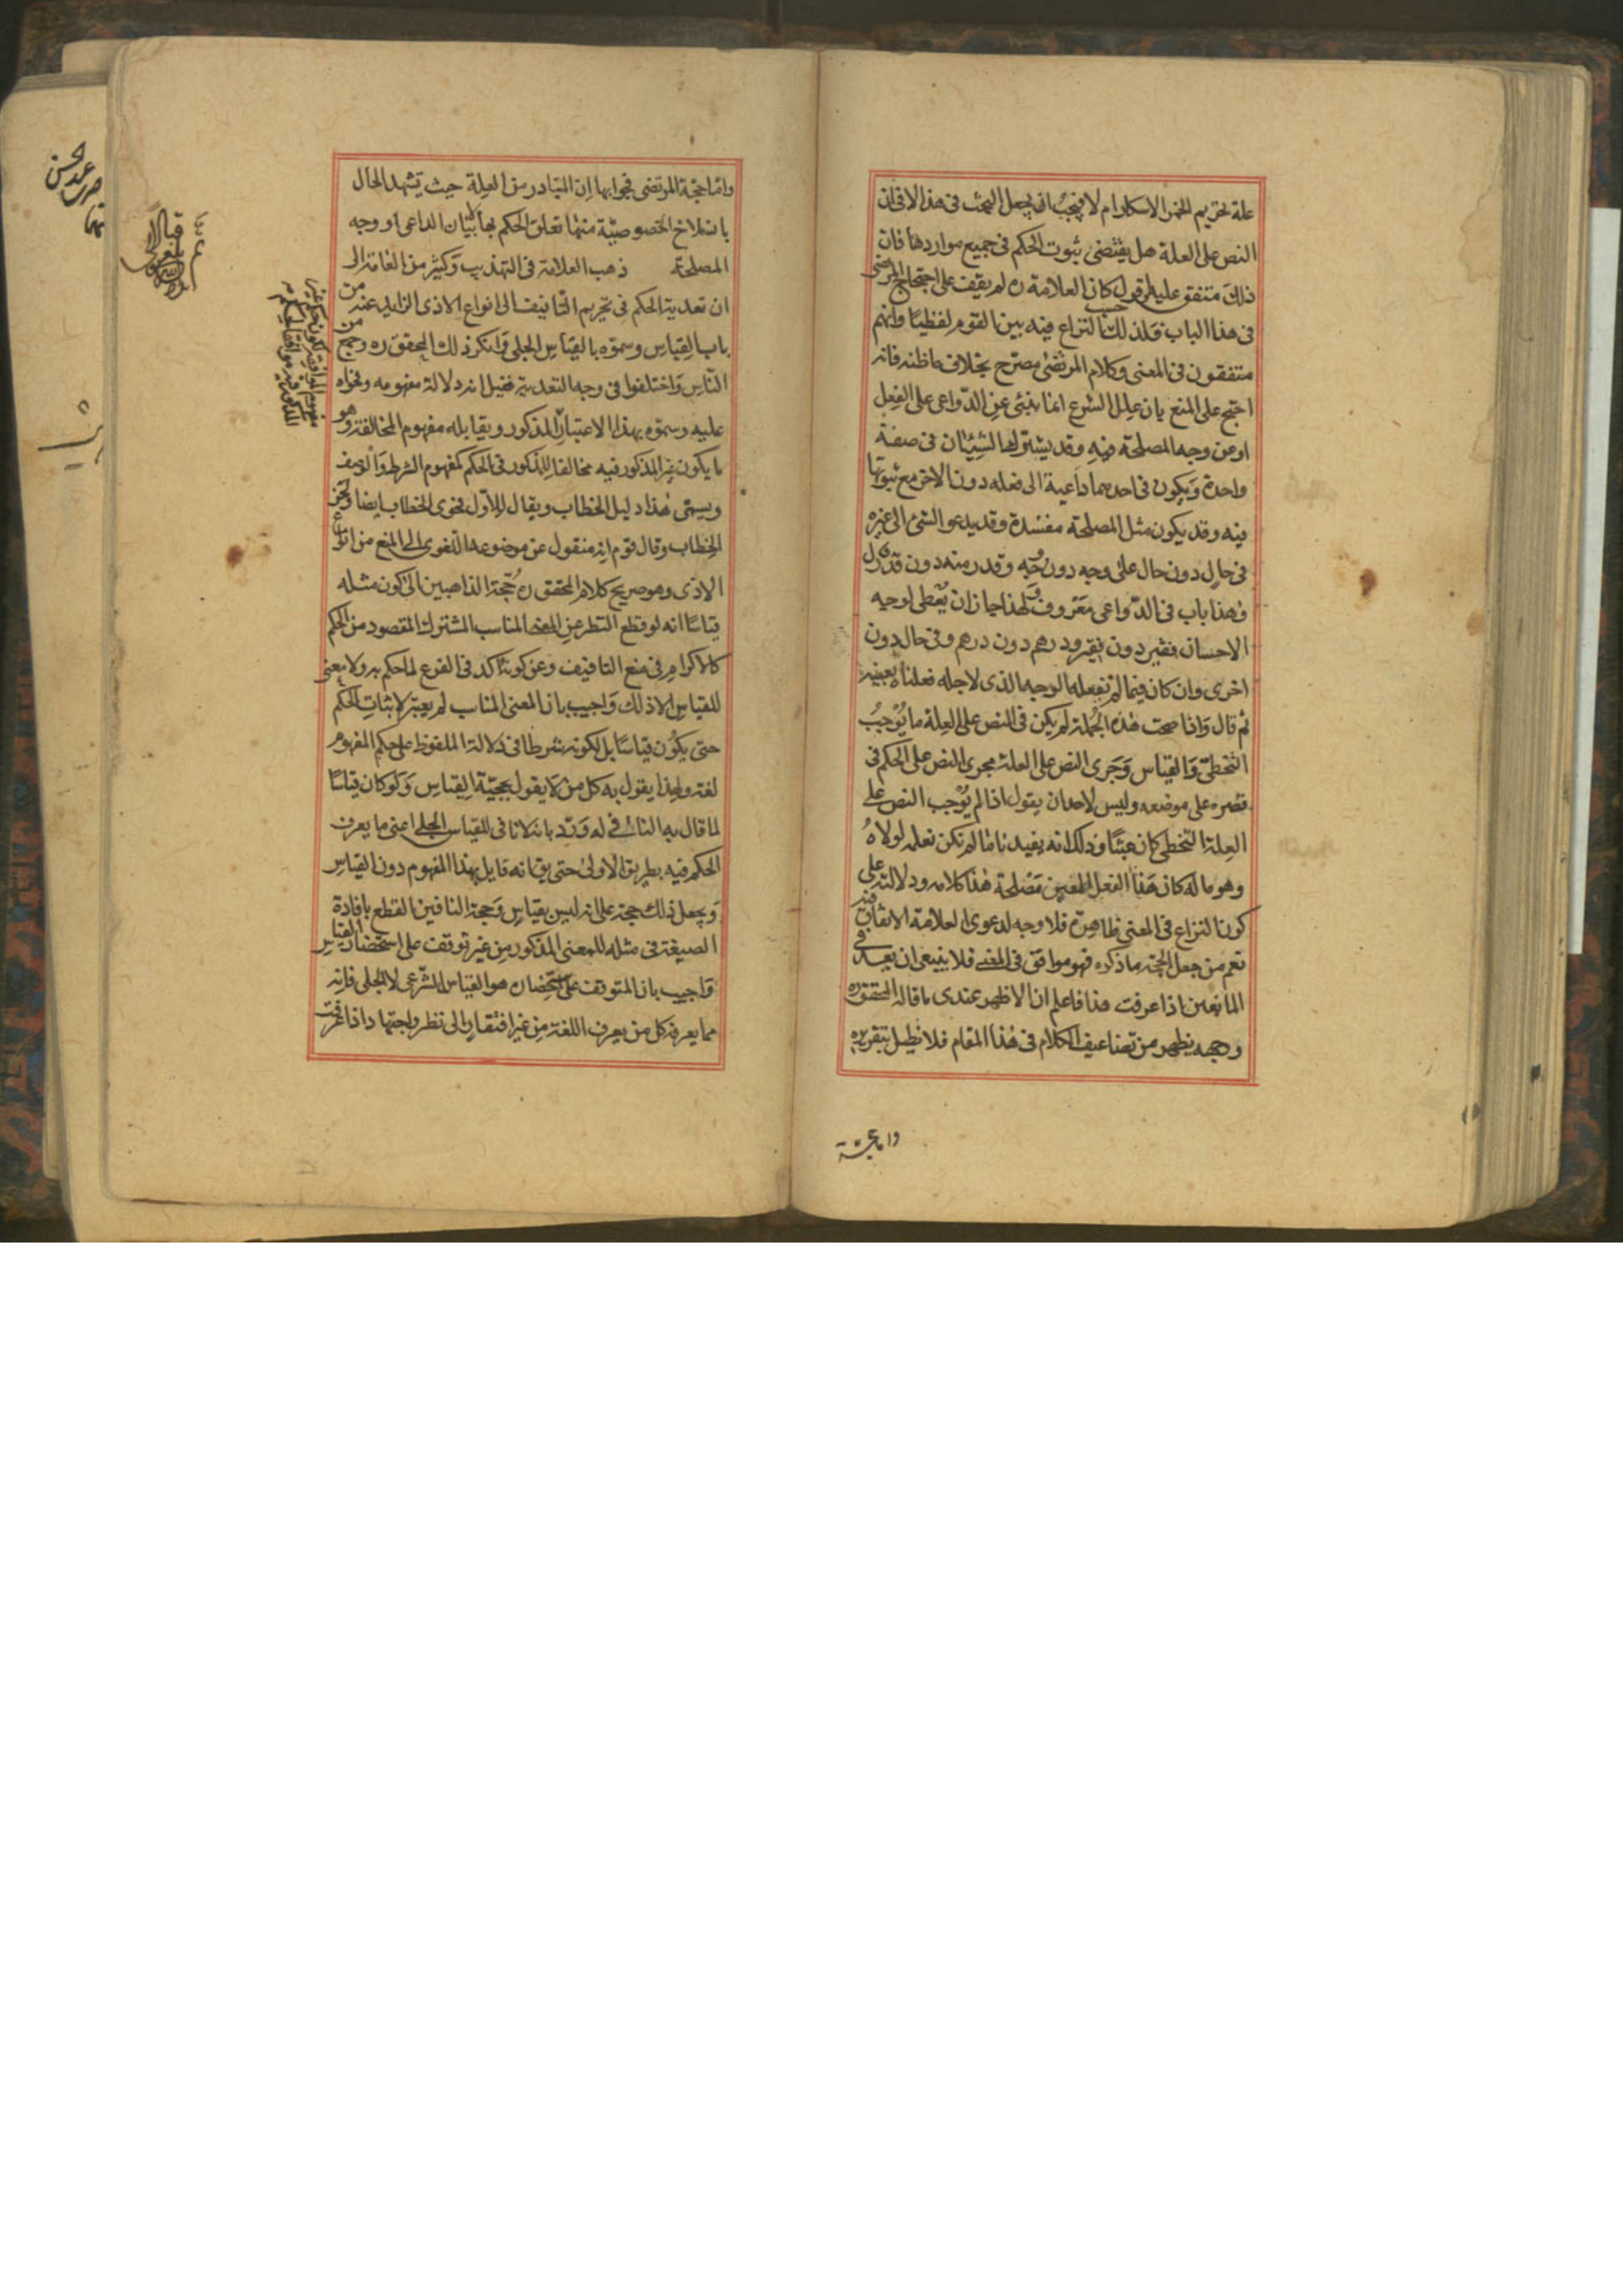 علة لتحريم الخمر الاسكار ام لا فيجب ان يجعل البحث فى هذا لا فى ان
النص على العلة هل يقتضى ثبوت الحكم فى جميع مواردها فان
ذلك متفق عليه اقول كان العلامة ره لم يقف على احتجاج المرتضى
فى هذا الباب فلذلك حسب النزاع فيه بين القوم لفظيا وانهم
متفقون فى المعنى وكلام المرتضى مصرح بخلاف ما ظنه فانه
احتج على المنع بان علل الشرع انما تنبئ عن الدواعى على الفعل
او عن وجه المصلحة فيه وقد يشترك الشيئان فى صفة
واحدة ويكون فى احدهما داعية الى فعله دون الاخر مع ثبوتها
فيه وقد يكون مثل المصلحة مفسدة وقد يدعو الشئ الى غيره
فى حال دون حال على وجه دون وجه وقدر منه دون قدر قال
وهذا باب فى الدواعى معروف ولهذا جاز ان يعطى لوجه
الاحسان فقير دون فقير ودرهم دون درهم وفى حال دون
اخرى وان كان فيما لم نفعله الوجه الذى لاجله فعلنا بعينه
ثم قال واذا صحت هذه الجملة لم يكن فى النص على العلة ما يوجب
التخطى والقياس وجرى النص على العلة مجرى النص على الحكم فى
قصره على موضعه وليس لاحد ان يقول اذا لم يوجب النص على
العلة التخطى كان عبثا وذلك انه يفيدنا ما لم نكن نعلمه لولاه
وهو ما له كان هذا الفعل المعين مصلحة هذا كلامه ودلالته على
كون النزاع فى المعنى ظاهرة فلا وجه لدعوى العلامة الاتفاق فيه
نعم من جعل الحجة ما ذكره فهو موافق فى المعنى فلا ينبغى ان يعد فى
المانعين اذا عرفت هذا فاعلم ان الاظهر عندى ما قاله المحقق ره
ووجهه يظهر من تضاعيف الكلام فى هذا المقام فلا نطيل بتقريره
واما حجة
واما حجة المرتضى فجوابها ان المتبادر من العلة حيث يشهد الحال
بانسلاخ الخصوصية منها تعلق الحكم بها لا بيان الداعى او وجه
المصلحة ذهب العلامة فى التهذيب وكثير من العامة الى
ان تعدية الحكم فى تحريم التافيف الى انواع الاذى الزايد عنه من
باب القياس وسموه بالقياس الجلى وانكر ذلك المحقق ره وجمع من
الناس واختلفوا فى وجه التعدية فقيل انه دلالة مفهومه وفحواه
عليه وسموه بهذا الاعتبار المذكور ويقابله مفهوم المخالفة وهو
ما يكون غير المذكور فيه مخالفا للمذكور فى الحكم كمفهوم الشرط والوصف
ويسمى هذا دليل الخطاب ويقال للاول فحوى الخطاب ايضا ولحن
الخطاب وقال قوم انه منقول عن موضوعه اللغوى الى المنع من انواع
الاذى وهو صريح كلام المحقق ره حجة الذاهبين الى كون مثله
قياسا انه لو قطع النظر عن المعنى المناسب المشترك المقصود من الحكم
كالاكرام فى منع التافيف وعن كونه اكد فى الفرع لما حكم به ولا معنى
للقياس الا ذلك واجيب بان المعنى المناسب لم يعتبر لاثبات الحكم
حتى يكون قياسا بل لكونه شرطا فى دلالة الملفوظ على حكم المفهوم
لغة ولهذا يقول به كل من لا يقول بحجية القياس ولو كان قياسا
لما قال به النافى له ورد بانه لا نافى للقياس الجلى اعنى ما يعرف
الحكم فيه بطريق الاولى حتى يق انه قايل بهذا المفهوم دون القياس
ويجعل ذلك حجة على انه ليس بقياس وحجة النافين القطع بافادة
الصيغة فى مثله للمعنى المذكور من غير توقف على استحضار القياس
واجيب بان المتوقف على استحضاره هو القياس الشرعى لا الجلى فانه
مما يعرفه كل من يعرف اللغة من غير افتقار الى نظر واجتهاد اذا عرفت
مفهوم الموافقة لكون حكم غير
المذكور فيه موافقا لحكم